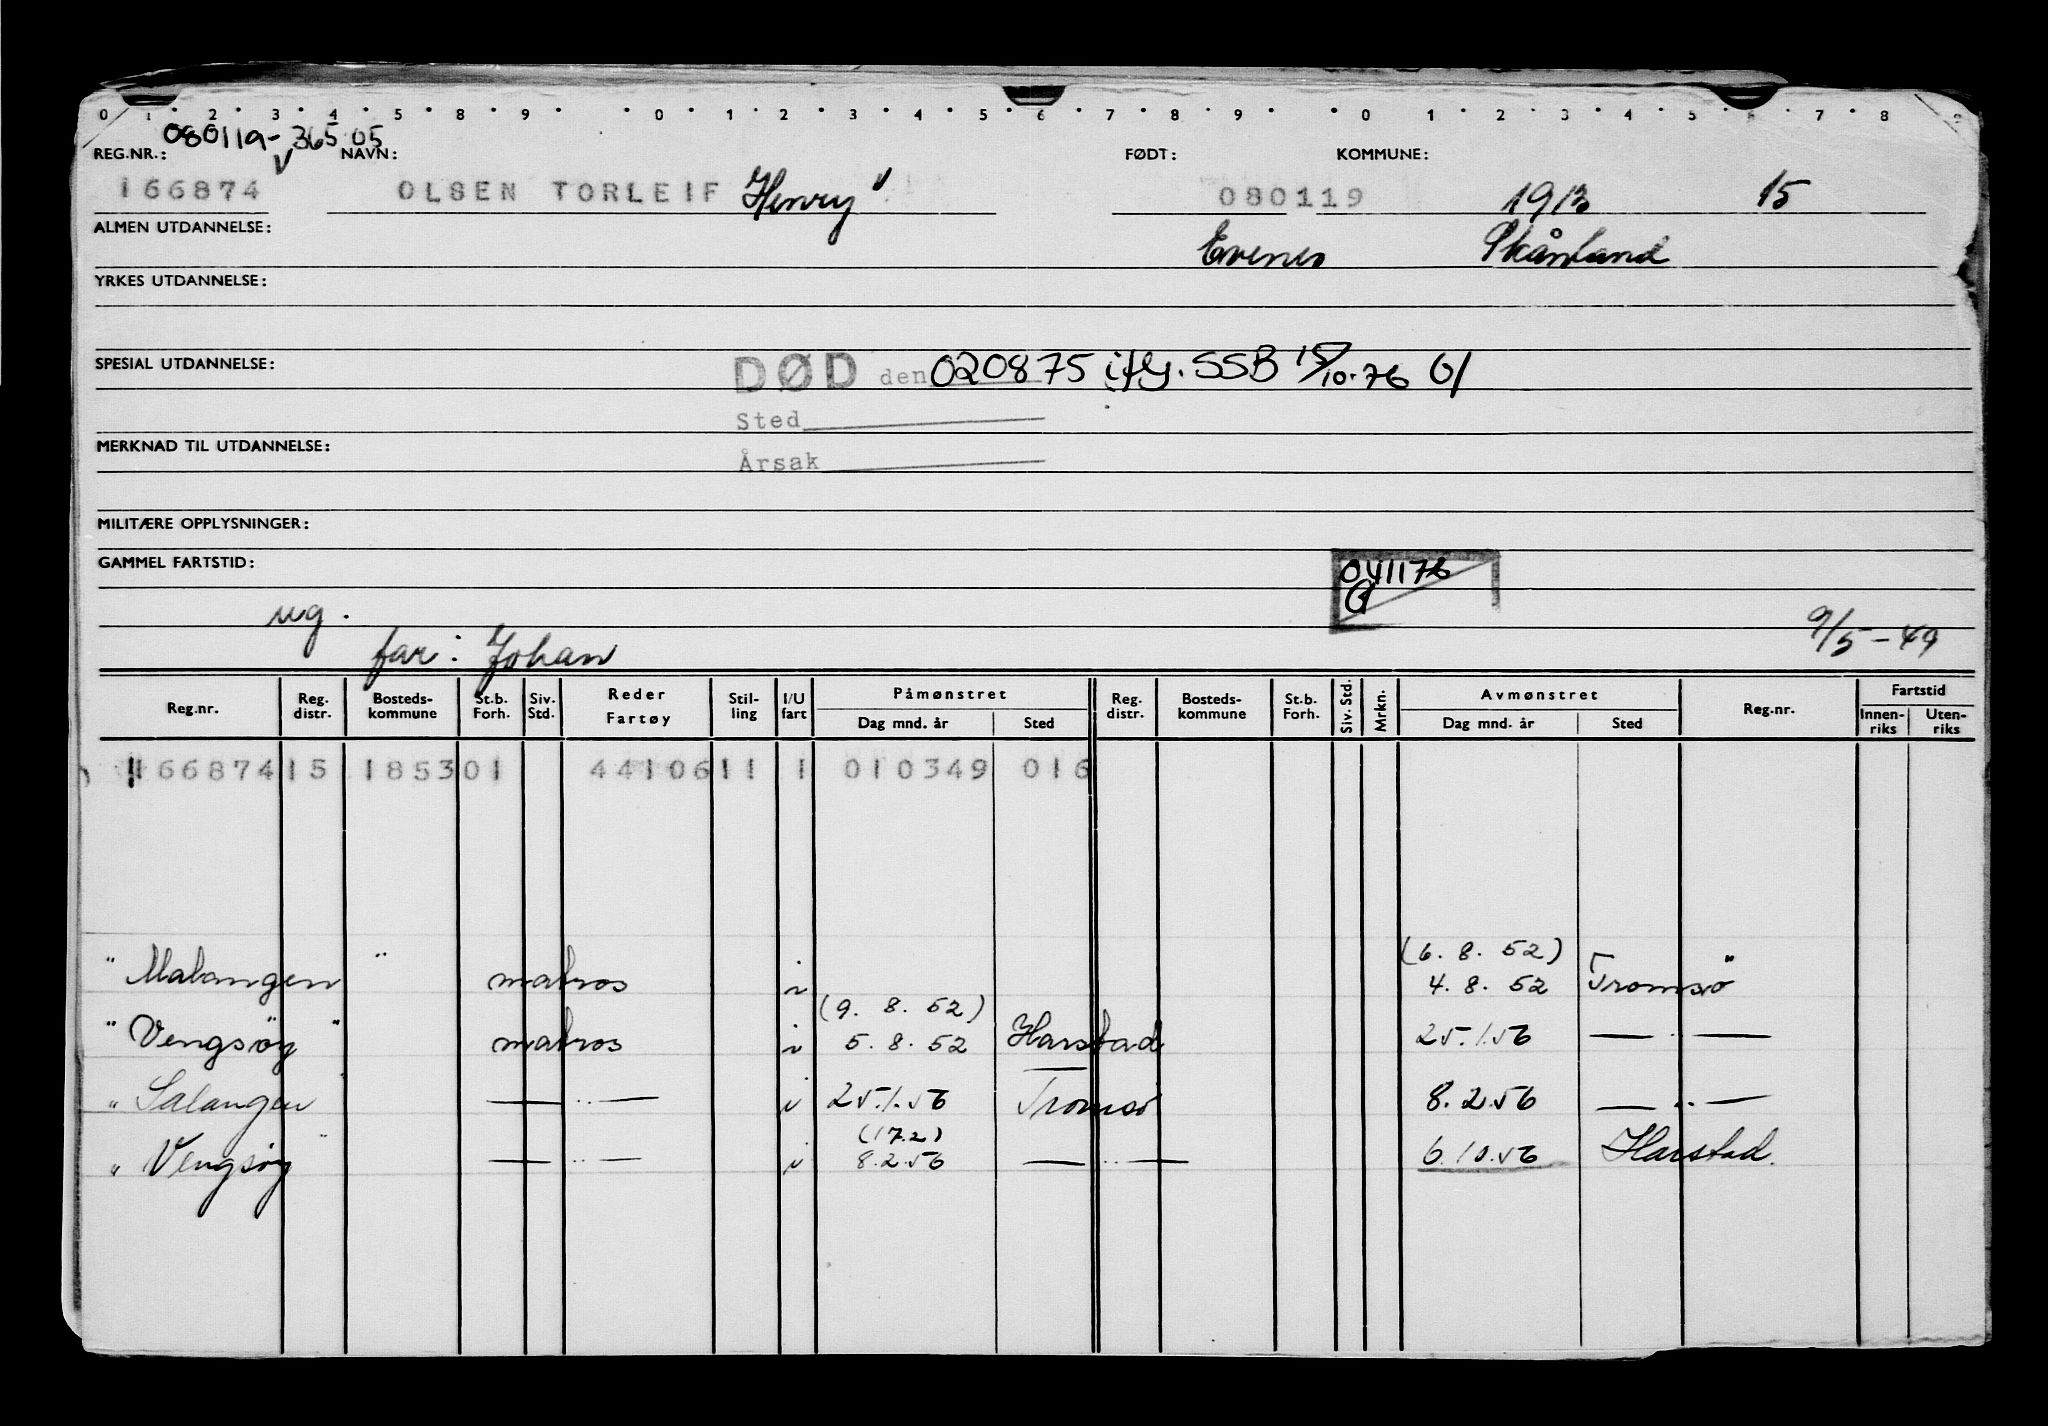 0 1 2 3 4 5 6 7 8 9 0 1 2 3 4 5 6 7 8 9 0 1 2 3 4 5 6 7 8 9
080119-36505
REG.NR.: NAVN: FØDT: KOMMUNE:
166874 OLSEN TORLEIF Henry 080119 1913 15
ALMEN UTDANNELSE: Evenes Skånland
YRKES UTDANNELSE:
SPESIAL UTDANNELSE: DØD den 020875 iflg. SSB 15/10.76
Sted
MERKNAD TIL UTDANNELSE:
Årsak
MILITÆRE OPPLYSNINGER:
GAMMEL FARTSTID: 041176
ug.
far: Johan 9/5-49
Reg.nr. Reg. distr. Bosteds-kommune St.b. Forh. Siv. Std. Reder Fartøy Stil-ling I/U fart Påmønstret Dag mnd. år Sted Reg. distr. Bosteds-kommune St.b. Forh. Siv. Std. Mrkn. Avmønstret Dag mnd. år Sted Reg.nr. Fartstid Innen-riks Uten-riks
166874 15 1853 01 441061 1 1 010349 016
(6. 8. 52)
"Malangen" matros i 4. 8. 52 Tromsø
(9. 8. 52)
"Vengsøy" matros i 5. 8. 52 Harstad 25.1.56 — " —
"Salangen" — " — i 25.1.56 Tromsø 8.2.56 — " —
(17.2)
"Vengsøy" — " — i 8.2.56 — " — 6.10.56 Harstad.